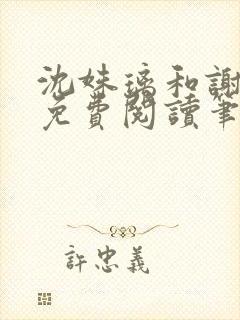 沈妹璃和謝
免費閱讀筆
許忠義